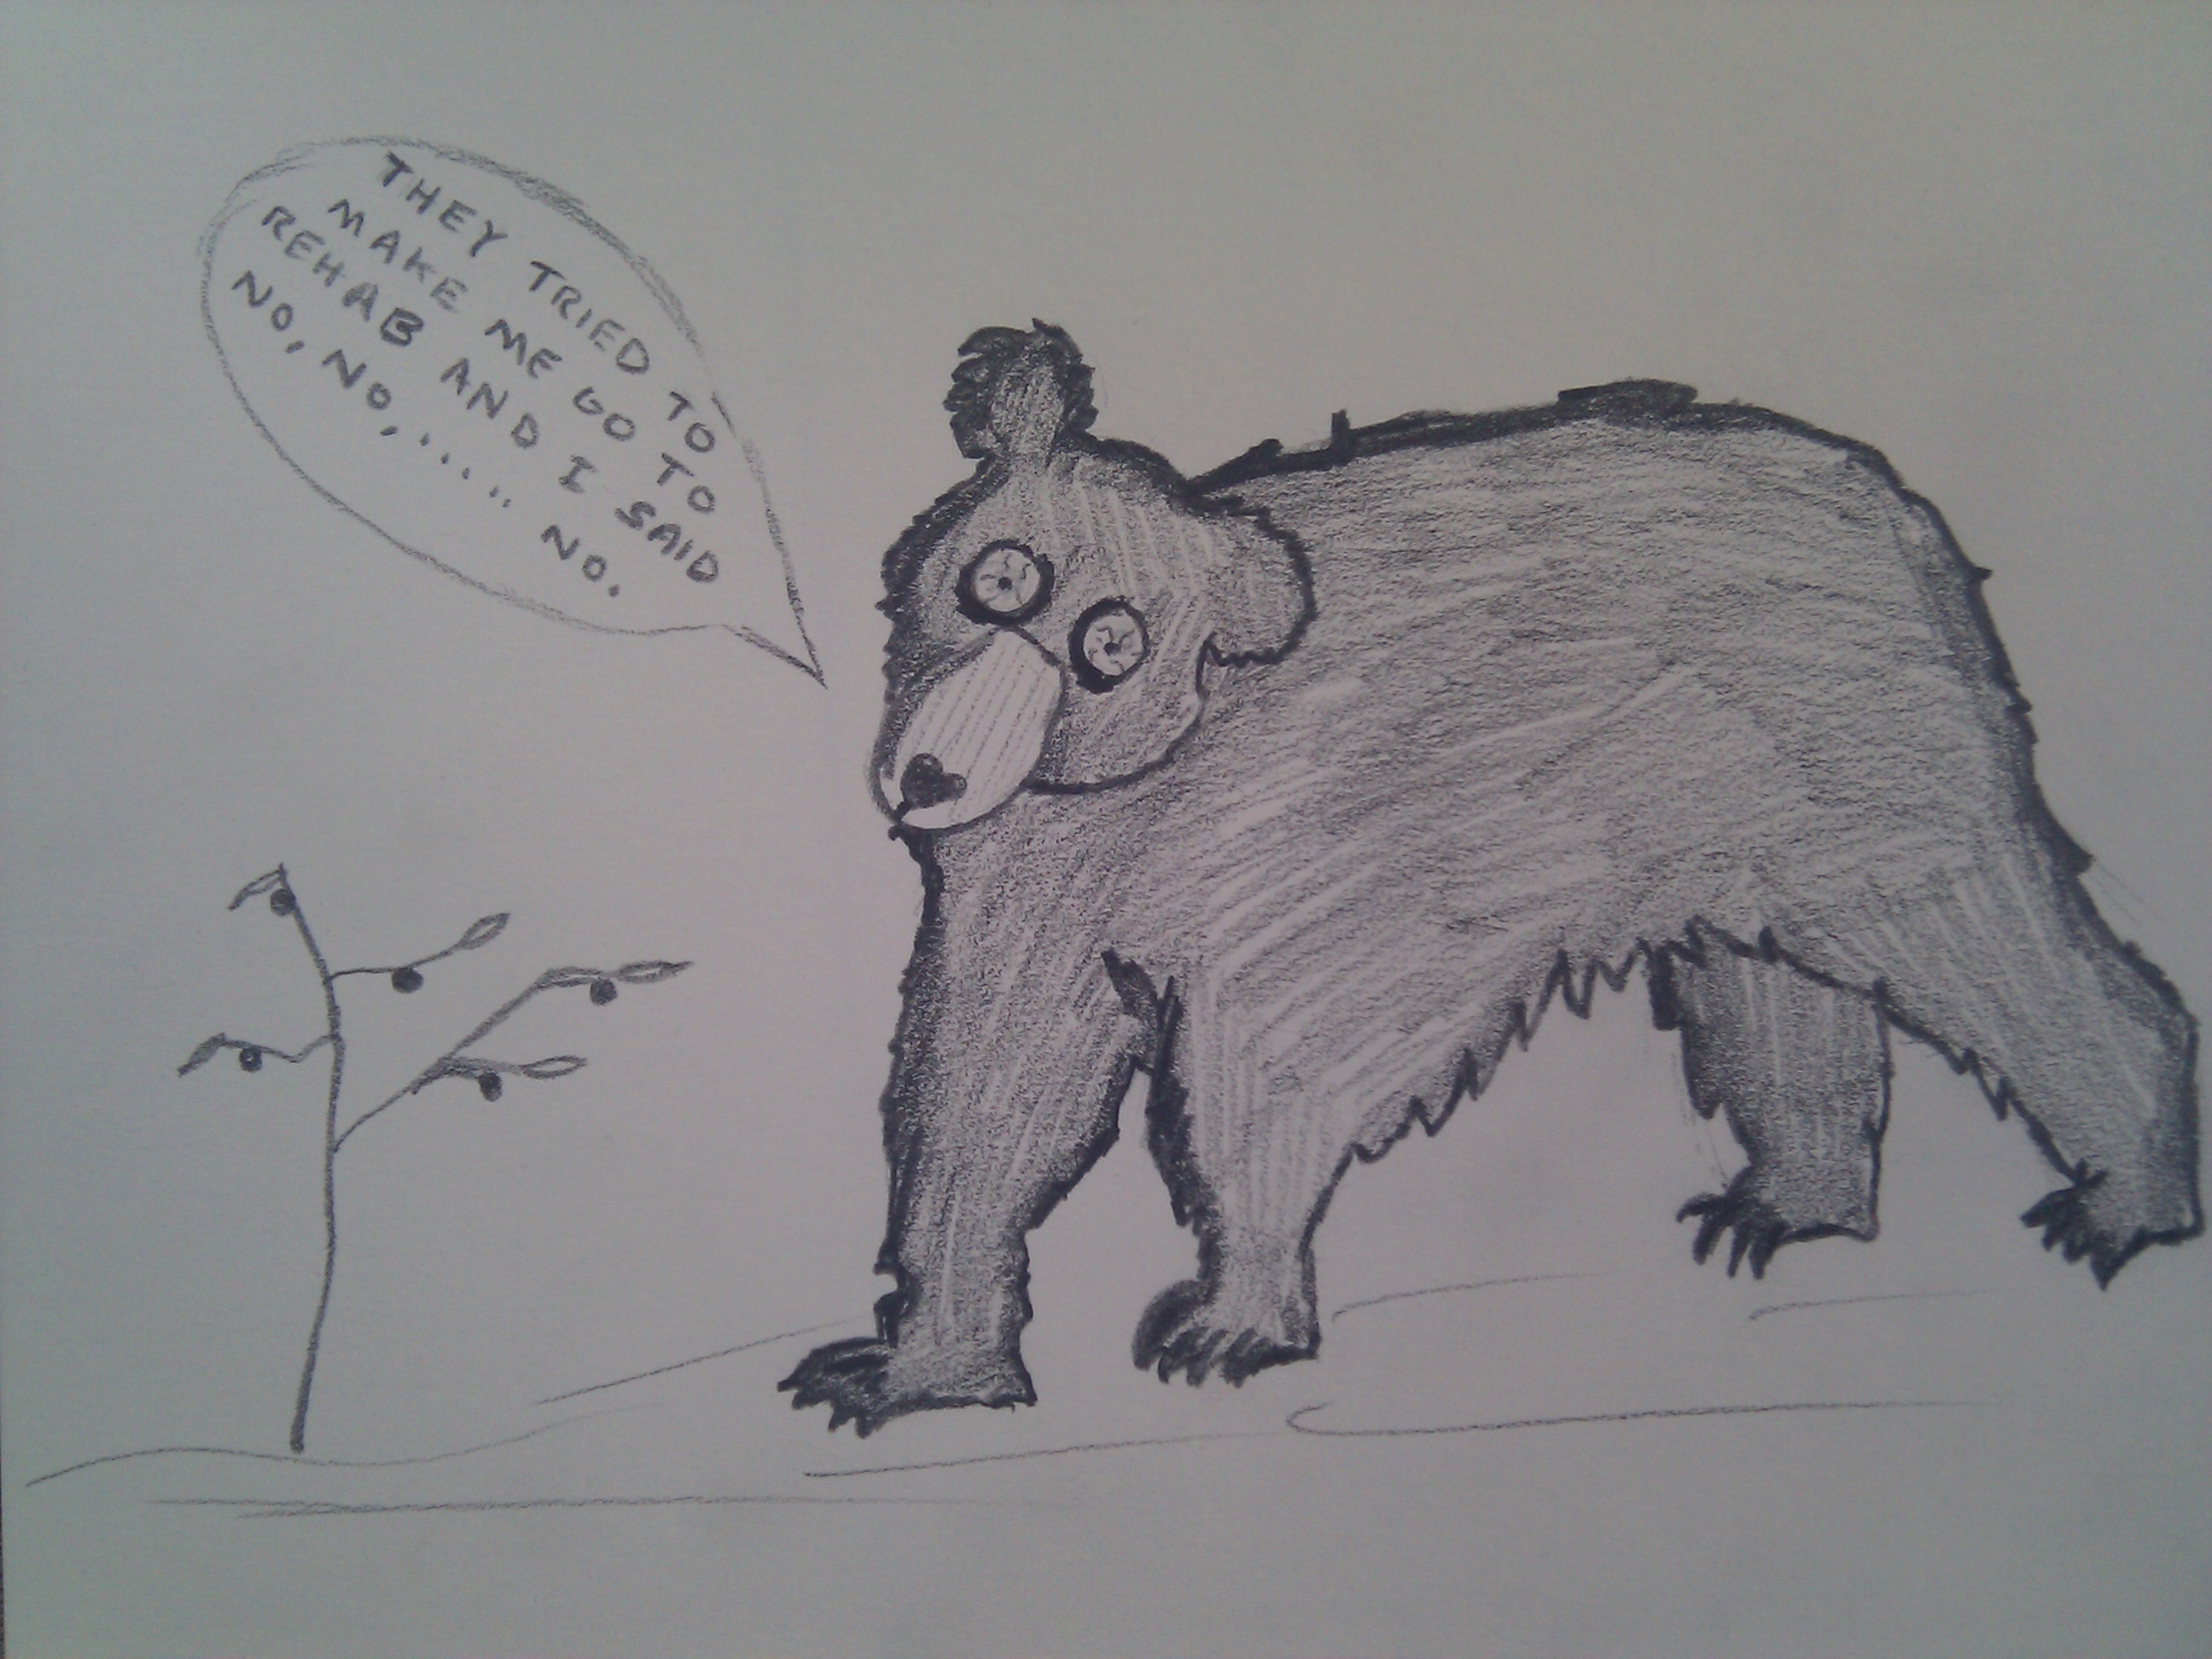 THEY TRIED TO
MAKE ME GO TO
REHAB AND I SAID
NO, NO, ...... NO.